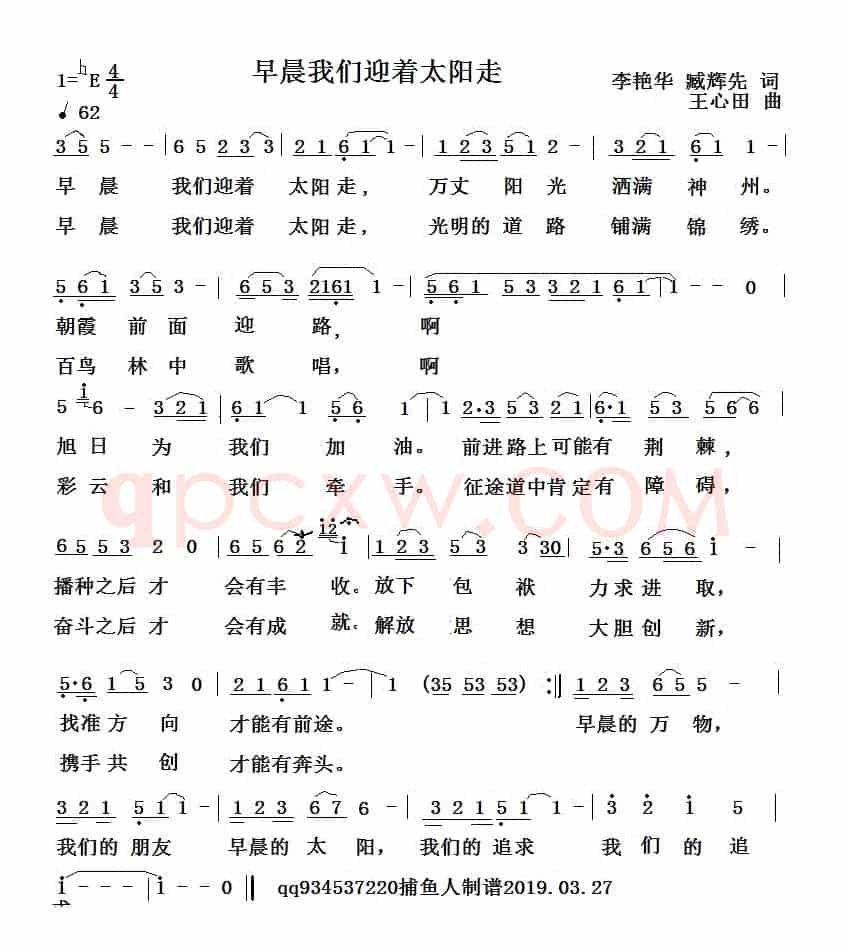 早晨我们迎着太阳走
1=♭E 4/4
李艳华 臧辉先 词
王心田 曲
♩ 62
3 5 5 - - | 6 5 2 3 3 | 2 1 6 1 1 - | 1 2 3 5 1 2 - | 3 2 1 6 1 1 - |
早 晨 我们迎着 太阳走， 万丈 阳光 洒满 神州。
早 晨 我们迎着 太阳走， 光明的 道路 铺满 锦绣。
5 6 1 3 5 3 - | 6 5 3 2161 1 - | 5 6 1 5 3 3 2 1 6 1 | 1 - - 0 |
朝霞 前面 迎 路， 啊
百鸟 林中 歌 唱， 啊
5 i 6 - 3 2 1 | 6 1 1 5 6 1 | 1 2·3 5 3 2 1 | 6·1 5 3 5 6 6 |
旭日 为 我们 加 油。 前进路上可能有 荆棘，
彩云 和 我们 牵 手。 征途道中肯定有 障碍，
qpcxw.COM
6 5 5 3 2 0 | 6 5 6 2 i2 i | 1 2 3 5 3 3 30 | 5·3 6 5 6 i - |
播种之后才 会有丰 收。放下 包 袱 力求进 取，
奋斗之后才 会有成 就。解放 思 想 大胆创 新，
5·6 1 5 3 0 | 2 1 6 1 1 - | 1 (35 53 53) :|| 1 2 3 6 5 5 - |
找准方 向 才能有前途。 早晨的 万 物，
携手共 创 才能有奔头。
3 2 1 5 1 1 - | 1 2 3 6 7 6 - | 3 2 1 5 1 1 - | 3 2 i 5 |
我们的 朋友 早晨的 太 阳， 我们的 追求 我 们 的 追
i - - - | i - - 0 || qq934537220捕鱼人制谱2019.03.27